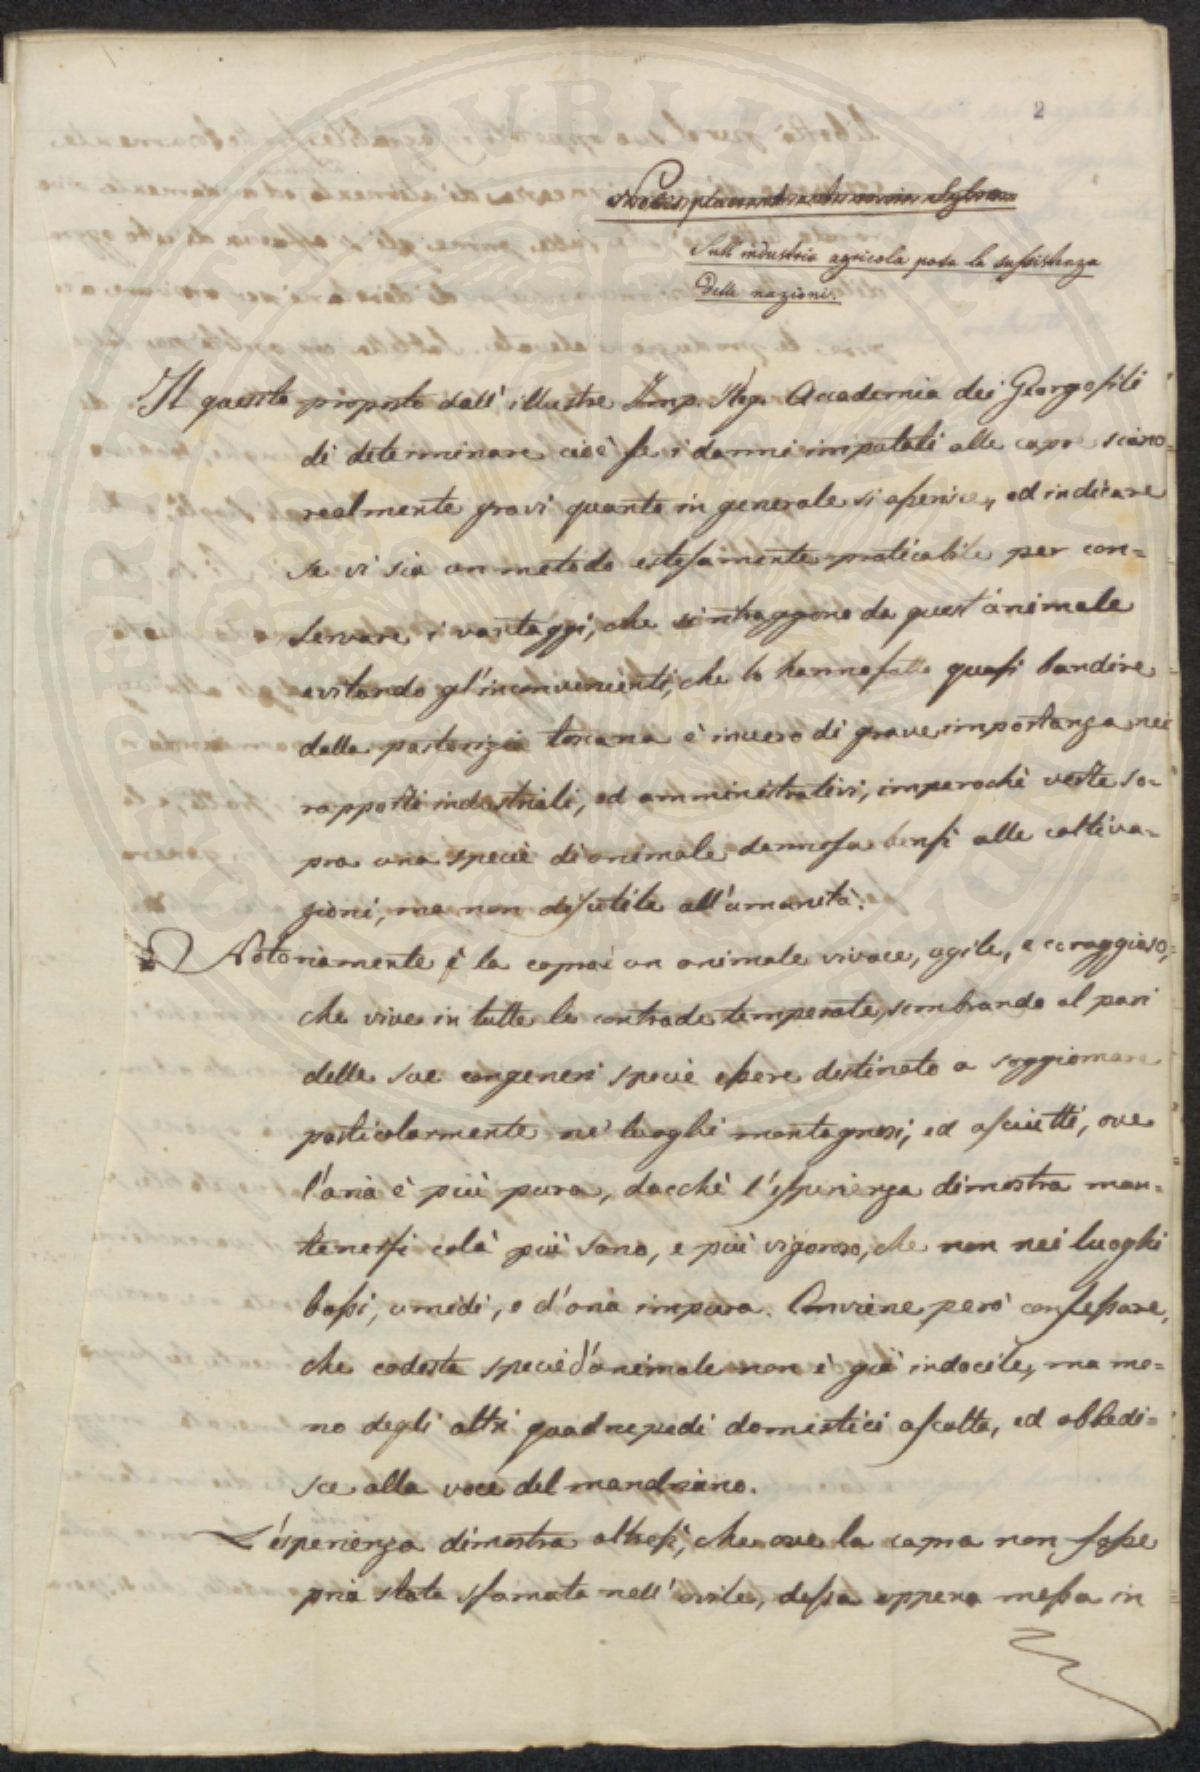 2
Nobis placeant ante omnia Sylvae
Sull' industria agricola posa la sussistenza
delle nazioni.
Il quesito proposto dall' illustre Imp. Reg. Accademia dei Georgofili
di determinare cioè se i danni imputati alle capre siano
realmente gravi quanto in generale si asserisce, ed indicare
se vi sia un metodo estesamente praticabile per con=
servare i vantaggi, che si ritraggono da quest' animale
evitando gl' inconvenienti, che lo hanno fatto quasi bandire
dalla pastorizia toscana è invero di grave importanza nei
rapporti industriali, ed amministrativi, imperochè verte so=
pra una specie di animale dannosa bensi alle coltiva=
zioni, ma non disutile all' umanità.
Notoriamente è la capra un animale vivace, agile, e coraggioso,
che vive in tutte le contrade temperate, sembrando al pari
delle sue congeneri specie essere destinato a soggiornare
particolarmente ne' luoghi montagnosi, ed asciutti, ove
l'aria è più pura, dacchè l'esperienza dimostra man=
tenersi colà più sano, e più vigoroso, che non nei luoghi
bassi, umidi, e d'aria impura. Conviene però confessare,
che codesta specie d'animale non è già indocile, ma me=
no degli altri quadrupedi domestici ascolta, ed obbedi=
sce alla voce del mandriano.
L'esperienza dimostra altresì, che ove la capra non fosse
pria stata sfamata nell' ovile, dessa appena messa in